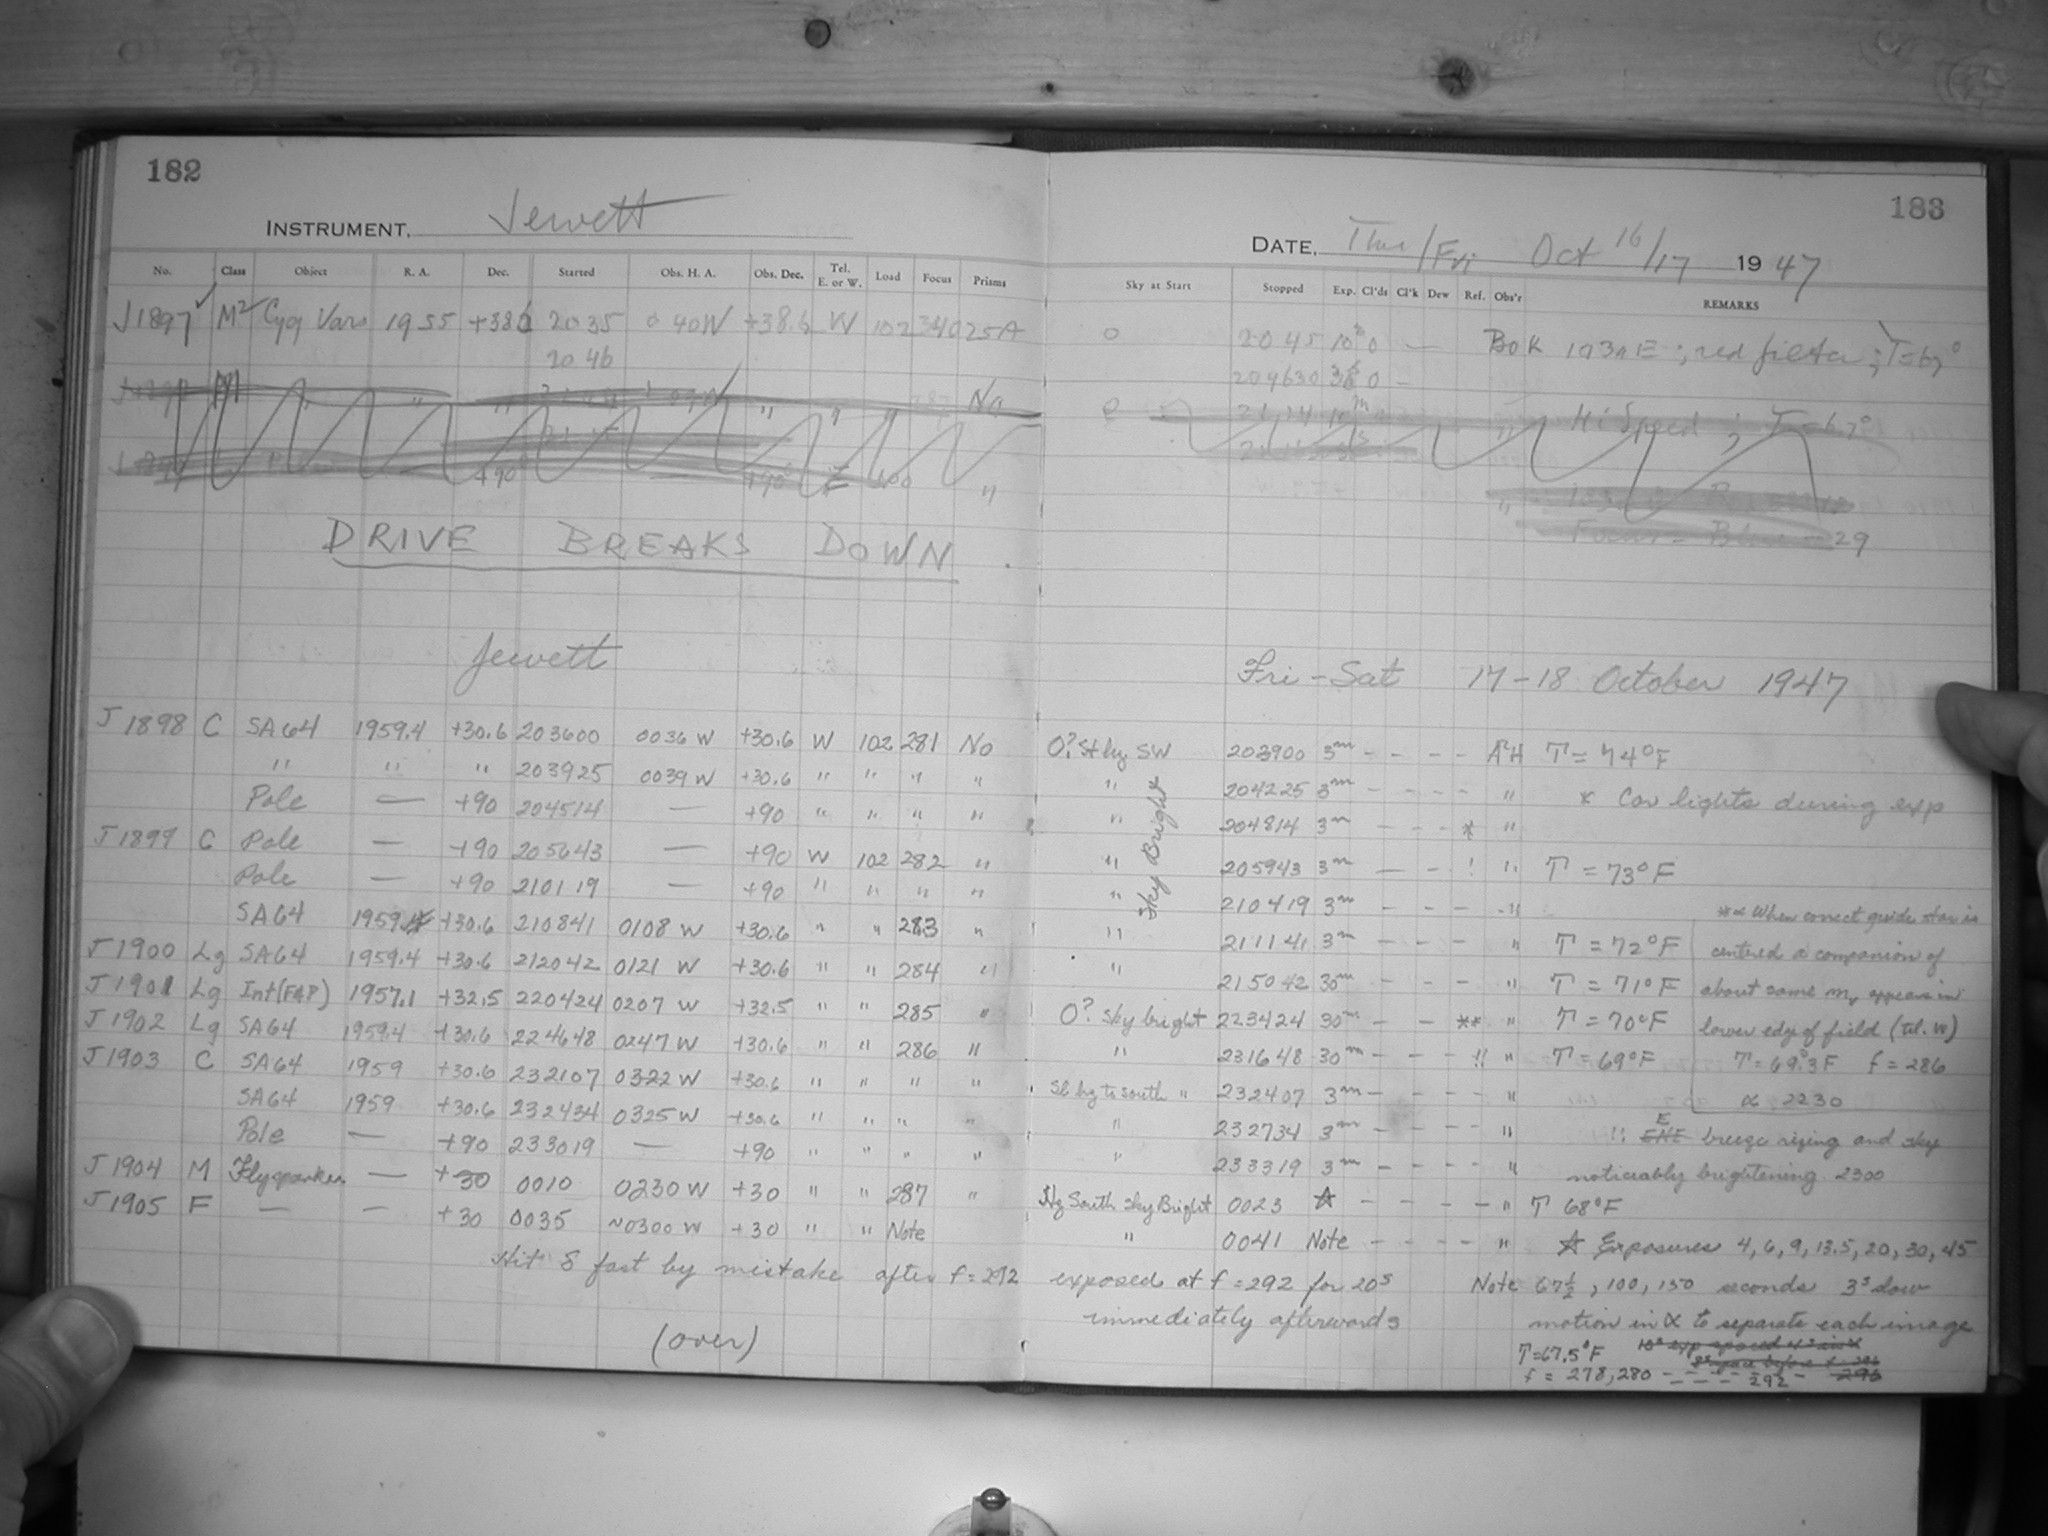 182
183
INSTRUMENT. Jewett
DATE, Thur/Fri Oct 16/17 1947
No. Class Object R. A. Dec. Started Obs. H. A. Obs. Dec. Tel. E. or W. Load Focus Prisms
Sky at Start Stopped Exp. Cl'ds Cl'k Dew Ref. Obs'r REMARKS
J1897 ✓ M2 Cyg Vars 1955 2035 0 40W +38.6 W 102
0 2045 10m 0 — Bok 103aE ; red filter ; T=67°
2046
204630 0 -
No
Hi Speed ; T=67°
+90 +90 E "
29
DRIVE BREAKS DOWN
Jewett
Fri - Sat 17-18 October 1947
J1898 C SA64 1959.4 +30.6 203600 0036 W +30.6 W 102 281 No 0? St hy SW 203900 3m - - - - AH T = 74°F
" " " 203925 0039 W +30.6 " " " " " 204225 3m - - - - " * Car lights during exp
Pole — +90 204514 — +90 " " " " " 204814 3m - - - * "
J1899 C Pole — +90 205643 — +90 W 102 282 " " 205943 3m — - - ! " T = 73°F
Pole — +90 210119 — +90 " " " " " 210419 3m - - - - "
Sky Bright
SA64 1959.4 +30.6 210841 0108 W +30.6 " " 283 " " 211141 3m - - - " T = 72°F
J1900 Lg SA64 1959.4 +30.6 212042 0121 W +30.6 " " 284 " " 215042 30m - - - " T = 71°F
J1901 Lg Int(FAP) 1957.1 +32.5 220424 0207 W +32.5 " " 285 " 0? Sky bright 223424 30m - - ** " T = 70°F
J1902 Lg SA64 1959.4 +30.6 224648 0247 W +30.6 " " 286 " " 231648 30m - - - !! " T = 69°F
J1903 C SA64 1959 +30.6 232107 0322 W +30.6 " " " " Sl hy to south " 232407 3m - - - - "
SA64 1959 +30.6 232434 0325 W +30.6 " " " " " 232734 3m - - - - "
Pole — +90 233019 — +90 " " " " " 233319 3m - - - - "
J1904 M Flyspanker — +30 0010 0230 W +30 " " 287 " Hz South Sky Bright 0023 ☆ - - - - " T 68°F
J1905 F — — +30 0035 ~0300 W +30 " " Note " 0041 Note - - - - "
** When correct guide star is
centered a companion of
about same mv appears in
lower edge of field (Tel. W)
T = 69.3°F f = 286
2230
!! ENE E breeze rising and sky
noticeably brightening. 2300
☆ Exposures 4, 6, 9, 13.5, 20, 30, 45
67½, 100, 150 seconds 3s slow
motion in α to separate each image
Hit δ fast by mistake after f = 292 exposed at f = 292 for 20s
immediately afterwards
Note
T=67.5°F
f = 278, 280 - - - - - - 292 - 296
(over)